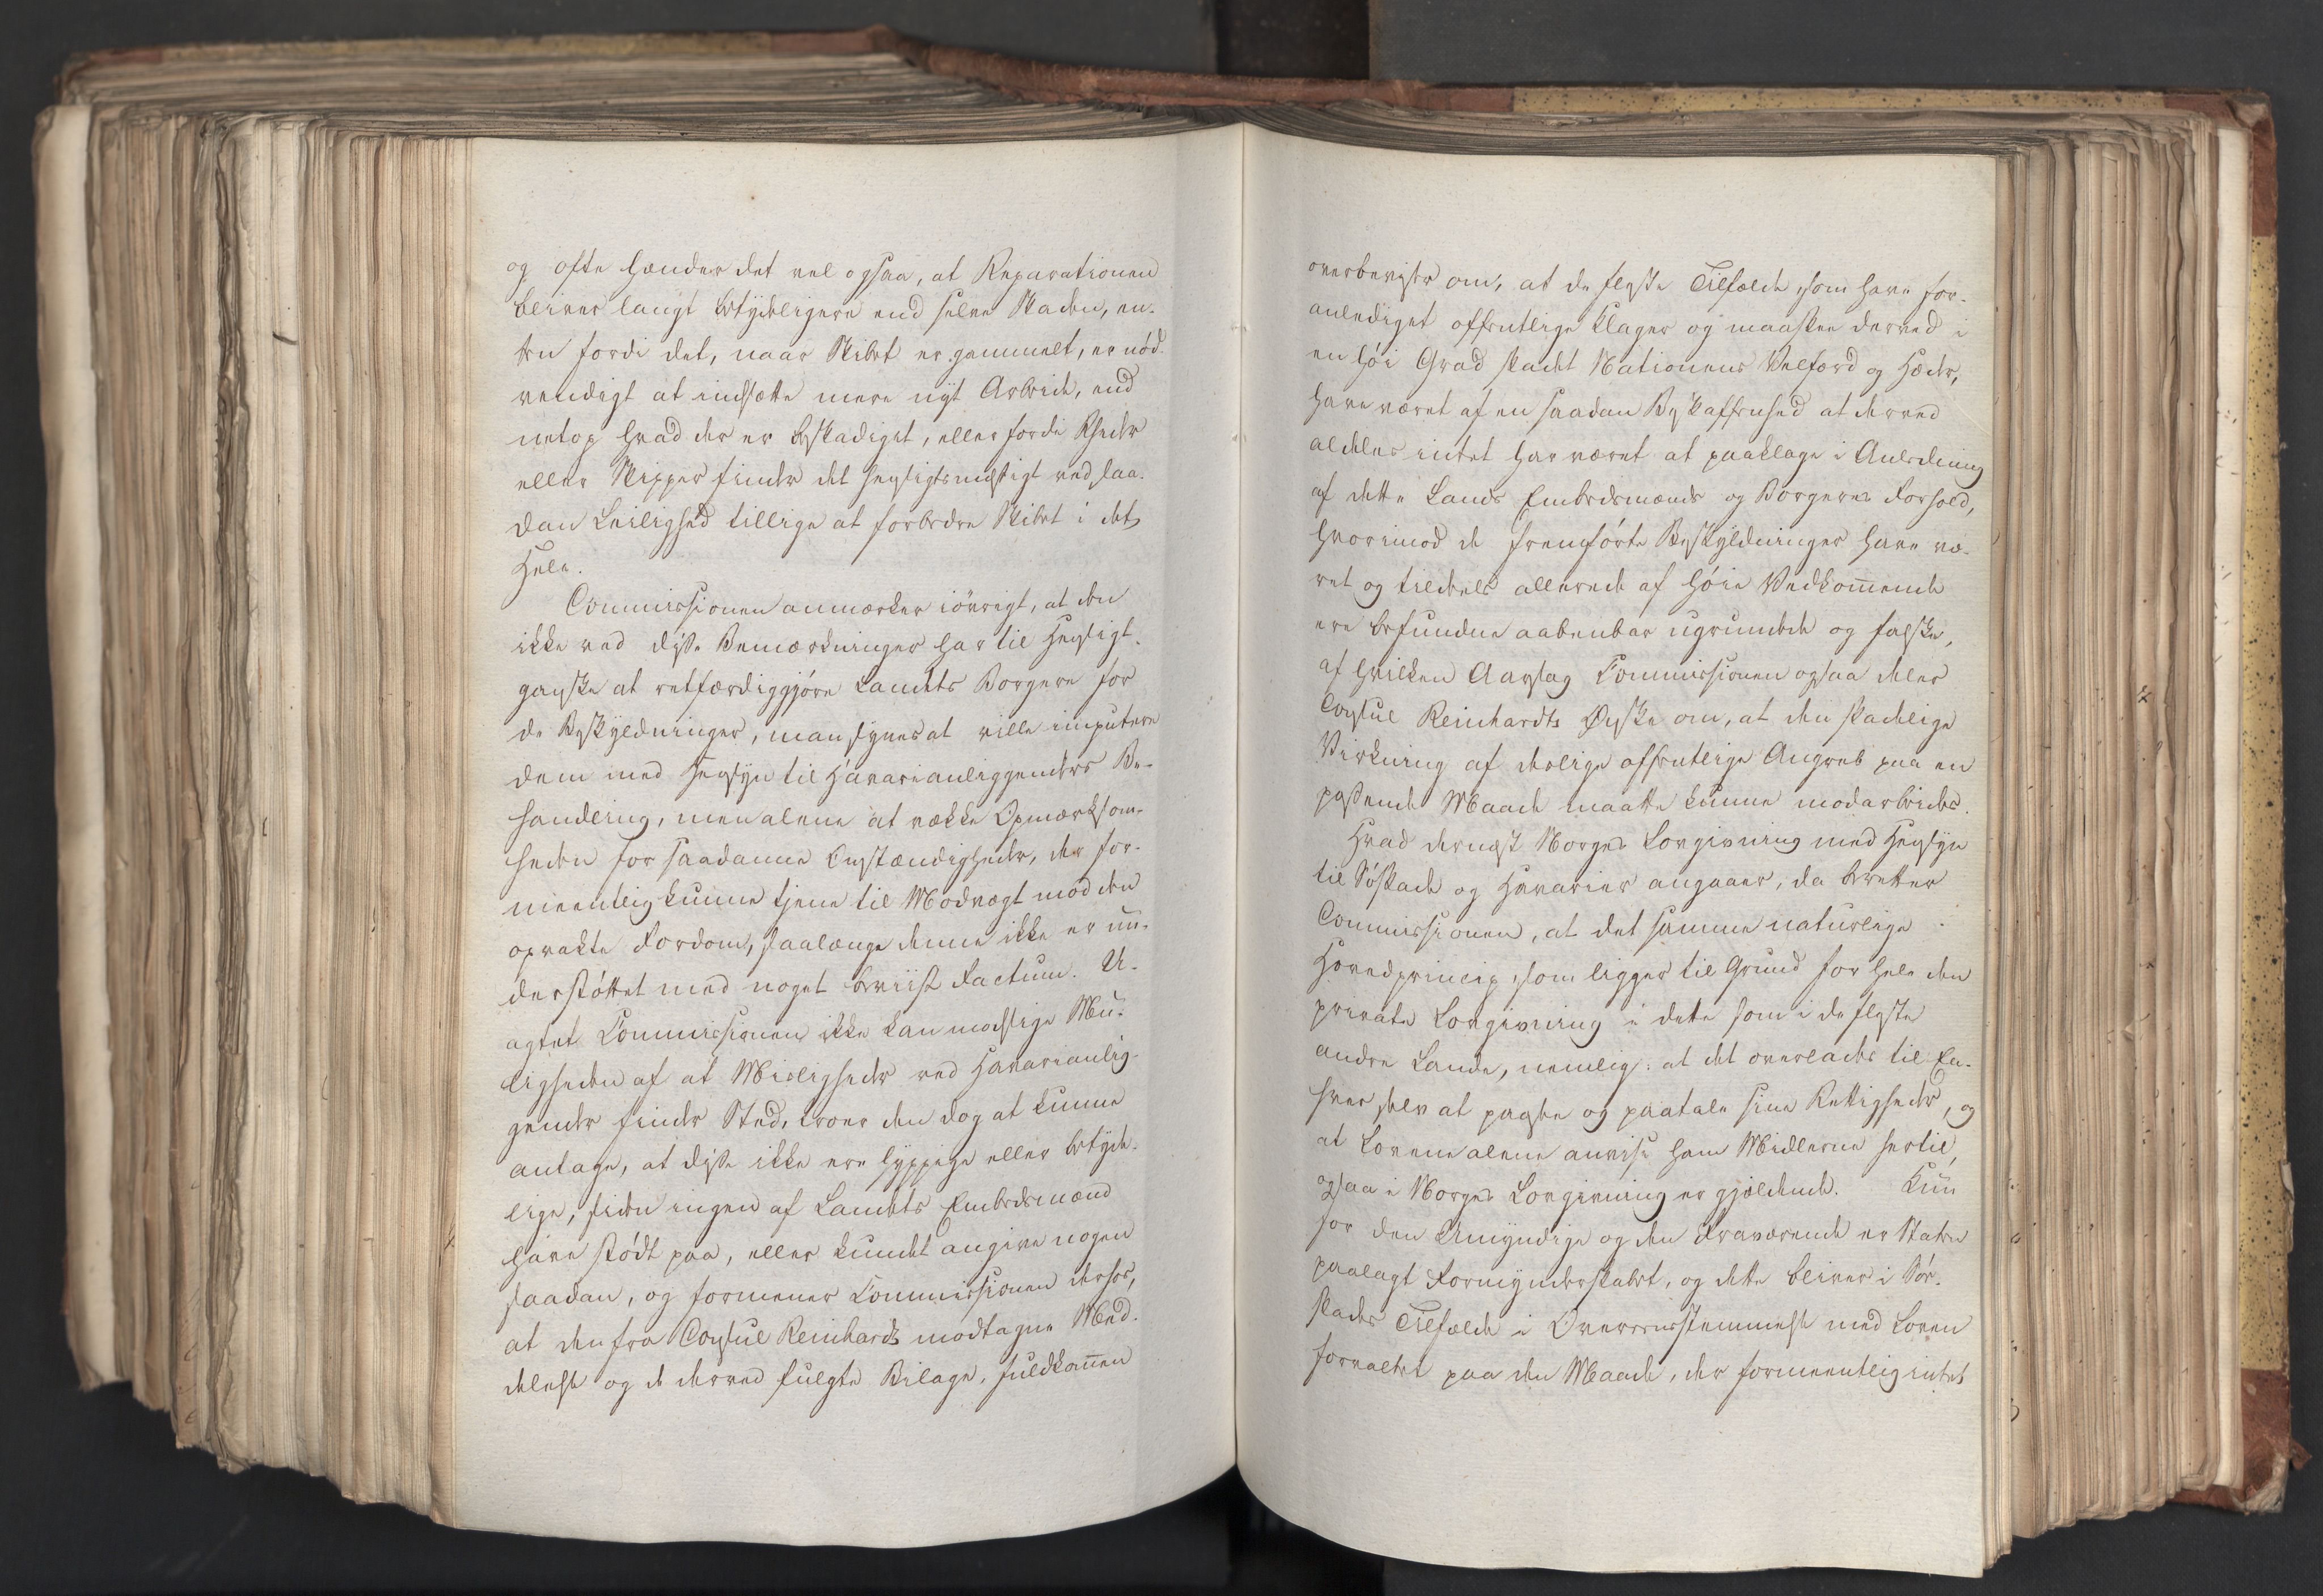 og ofte hænder det vel ogsaa, at Reparationen
bliver langt betydeligere end selve Skaden, en-
ten fordi det, naar Skibet er gammelt, er nød-
vendigt at indsætte mere nyt Arbeide, end
netop hvad der er beskadiget, eller fordi Rheder
eller Skipper finder det hensigtsmæssigt ved saa-
dan Leilighed tillige at forbedre Skibet i det
Hele.
Commissionen anmærker iøvrigt, at den
ikke ved disse Bemærkninger har til Hensigt
ganske at retfærdiggjøre Landets Borgere for
de Beskyldninger, man synes at ville imputere
dem med Hensyn til Havarianliggenders Be-
handling, men alene at vække Opmærksom-
heden for saadanne Omstændigheder, der for-
meentlig kunne tjene til Modvægt mod den
opvakte Fordom, saalænge denne ikke er un-
derstøttet med noget beviist Factum. U-
agtet Commissionen ikke kan modsige Mu-
ligheden af at Misligheder ved Havarianlig-
gender finder Sted, troer den dog at kunne
antage, at disse ikke ere hyppige eller betyde-
lige, siden ingen af Landets Embedsmænd
have stødt paa, eller kundet angive nogen
saadan, og formener Commissionen derfor,
at den fra Consul Reinhardt modtagne Med-
delelse og de derved fulgte Bilage, fuldkom̅en
overbeviser om, at de fleste Tilfælde, som have for-
anlediget offentlige Klager og maaskee derved i
en høi Grad skadet Nationens Velfærd og Hæder,
have været af en saadan Beskaffenhed at derved
aldeles intet har været at paaklage i Anledning
af dette Lands Embedsmænds og Borgeres Forhold,
hvorimod de fremførte Beskyldninger have væ-
ret og tildeels allerede af høie Vedkom̅ende
ere befundne aabenbar ugrundede og falske,
af hvilken Aarsag Commissionen ogsaa deler
Consul Reinhardts Ønske om, at den skadelige
Virkning af deslige offentlige Angreb paa en
passende Maade maatte kunne modarbeides.
Hvad dernæst Norges Lovgivning med Hensyn
til Søskade og Havarier angaaer, da beretter
Commissionen, at det samme naturlige
Hovedprincip, som ligger til Grund for hele den
private Lovgivning i dette som i de fleste
andre Lande, nemlig: at det overlades til En-
hver selv at passe og paatale sine Rettigheder, og
at Lovene alene anvise ham Midlerne hertil,
ogsaa i Norges Lovgivning er gjældende. Kun
for den Umyndige og den Fraværende er Staten
paalagt Formynderskabet, og dette bliver i Søe-
skades Tilfælde i Overeensstemmelse med Loven
forvaltet paa den Maade, der formeentlig intet